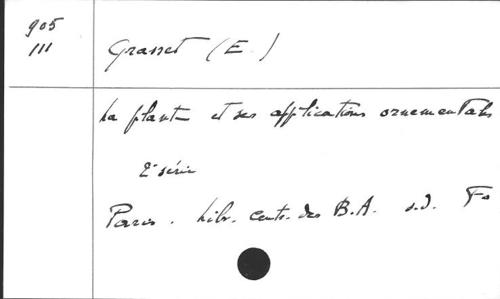 905
III
Grasset (E.)
La plante et ses applications ornementales
2e série
Paris. Libr. centr. des B.A. s.d. Fo